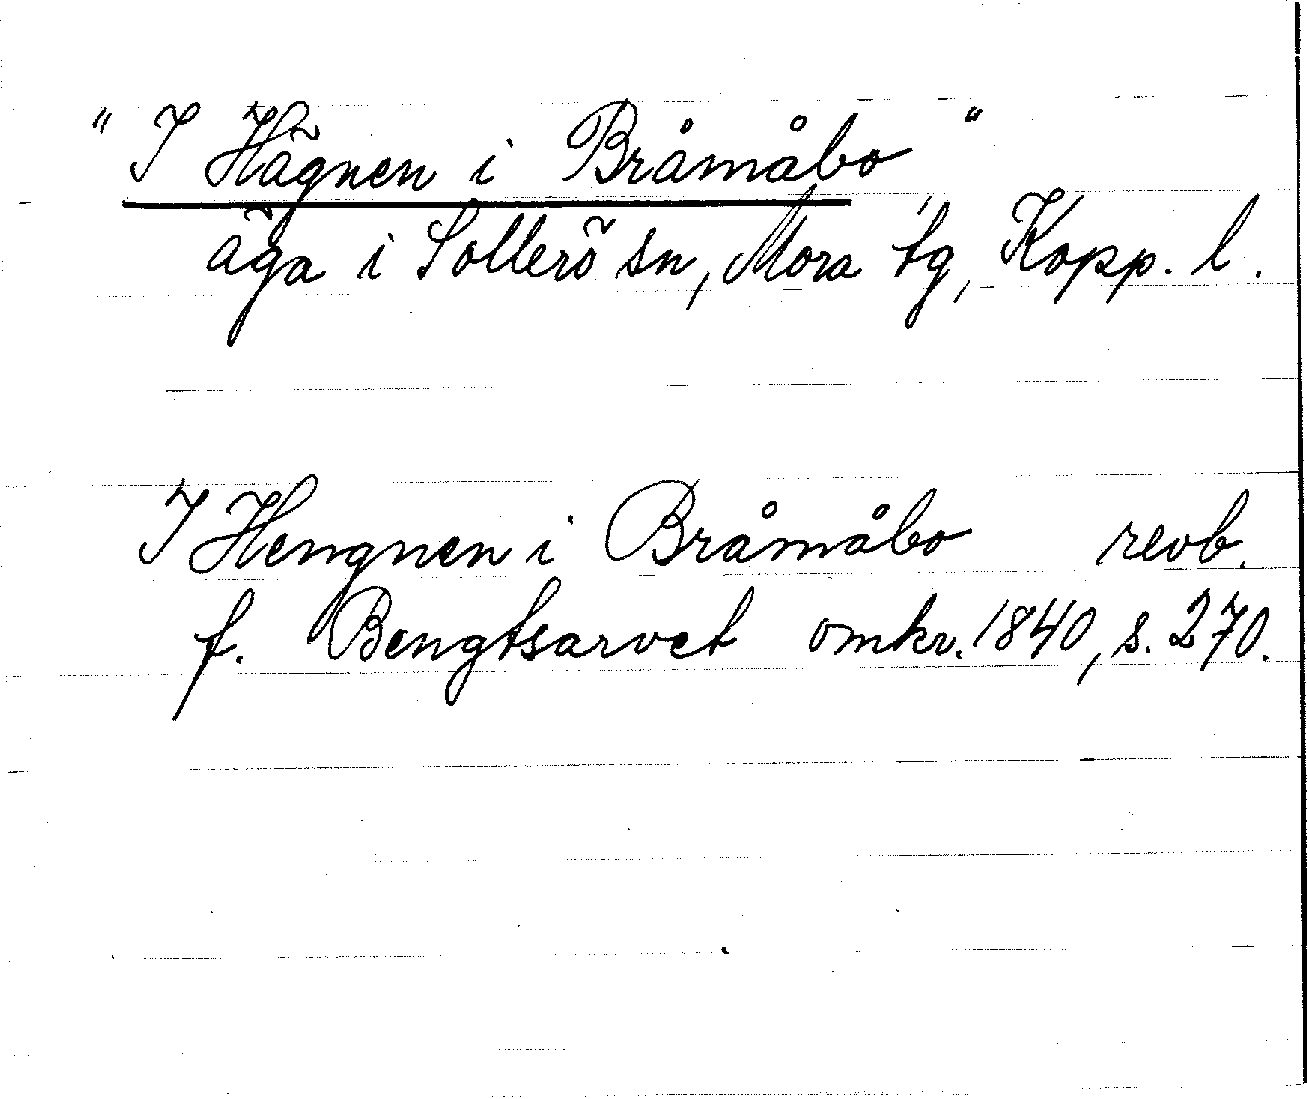 "I Hägnen i Bråmåbo"
äga i Sollerö sn, Mora tg, Kopp. l.
I Hengnen i Bråmåbo revb.
f. Bengtsarvet omkr. 1840, s. 270.